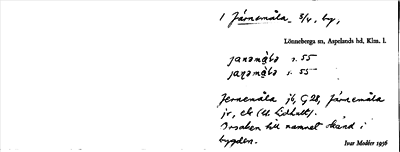 1 Järnemåla, 3/4, by,
Lönneberga sn, Aspelands hd, Klm. l.
s. 55
s. 55
Jernemåla jb, G 28, Järnemåla
jr, ek (
Orsaken till namnet okänd i
bygden.
Ivar Modéer 1936